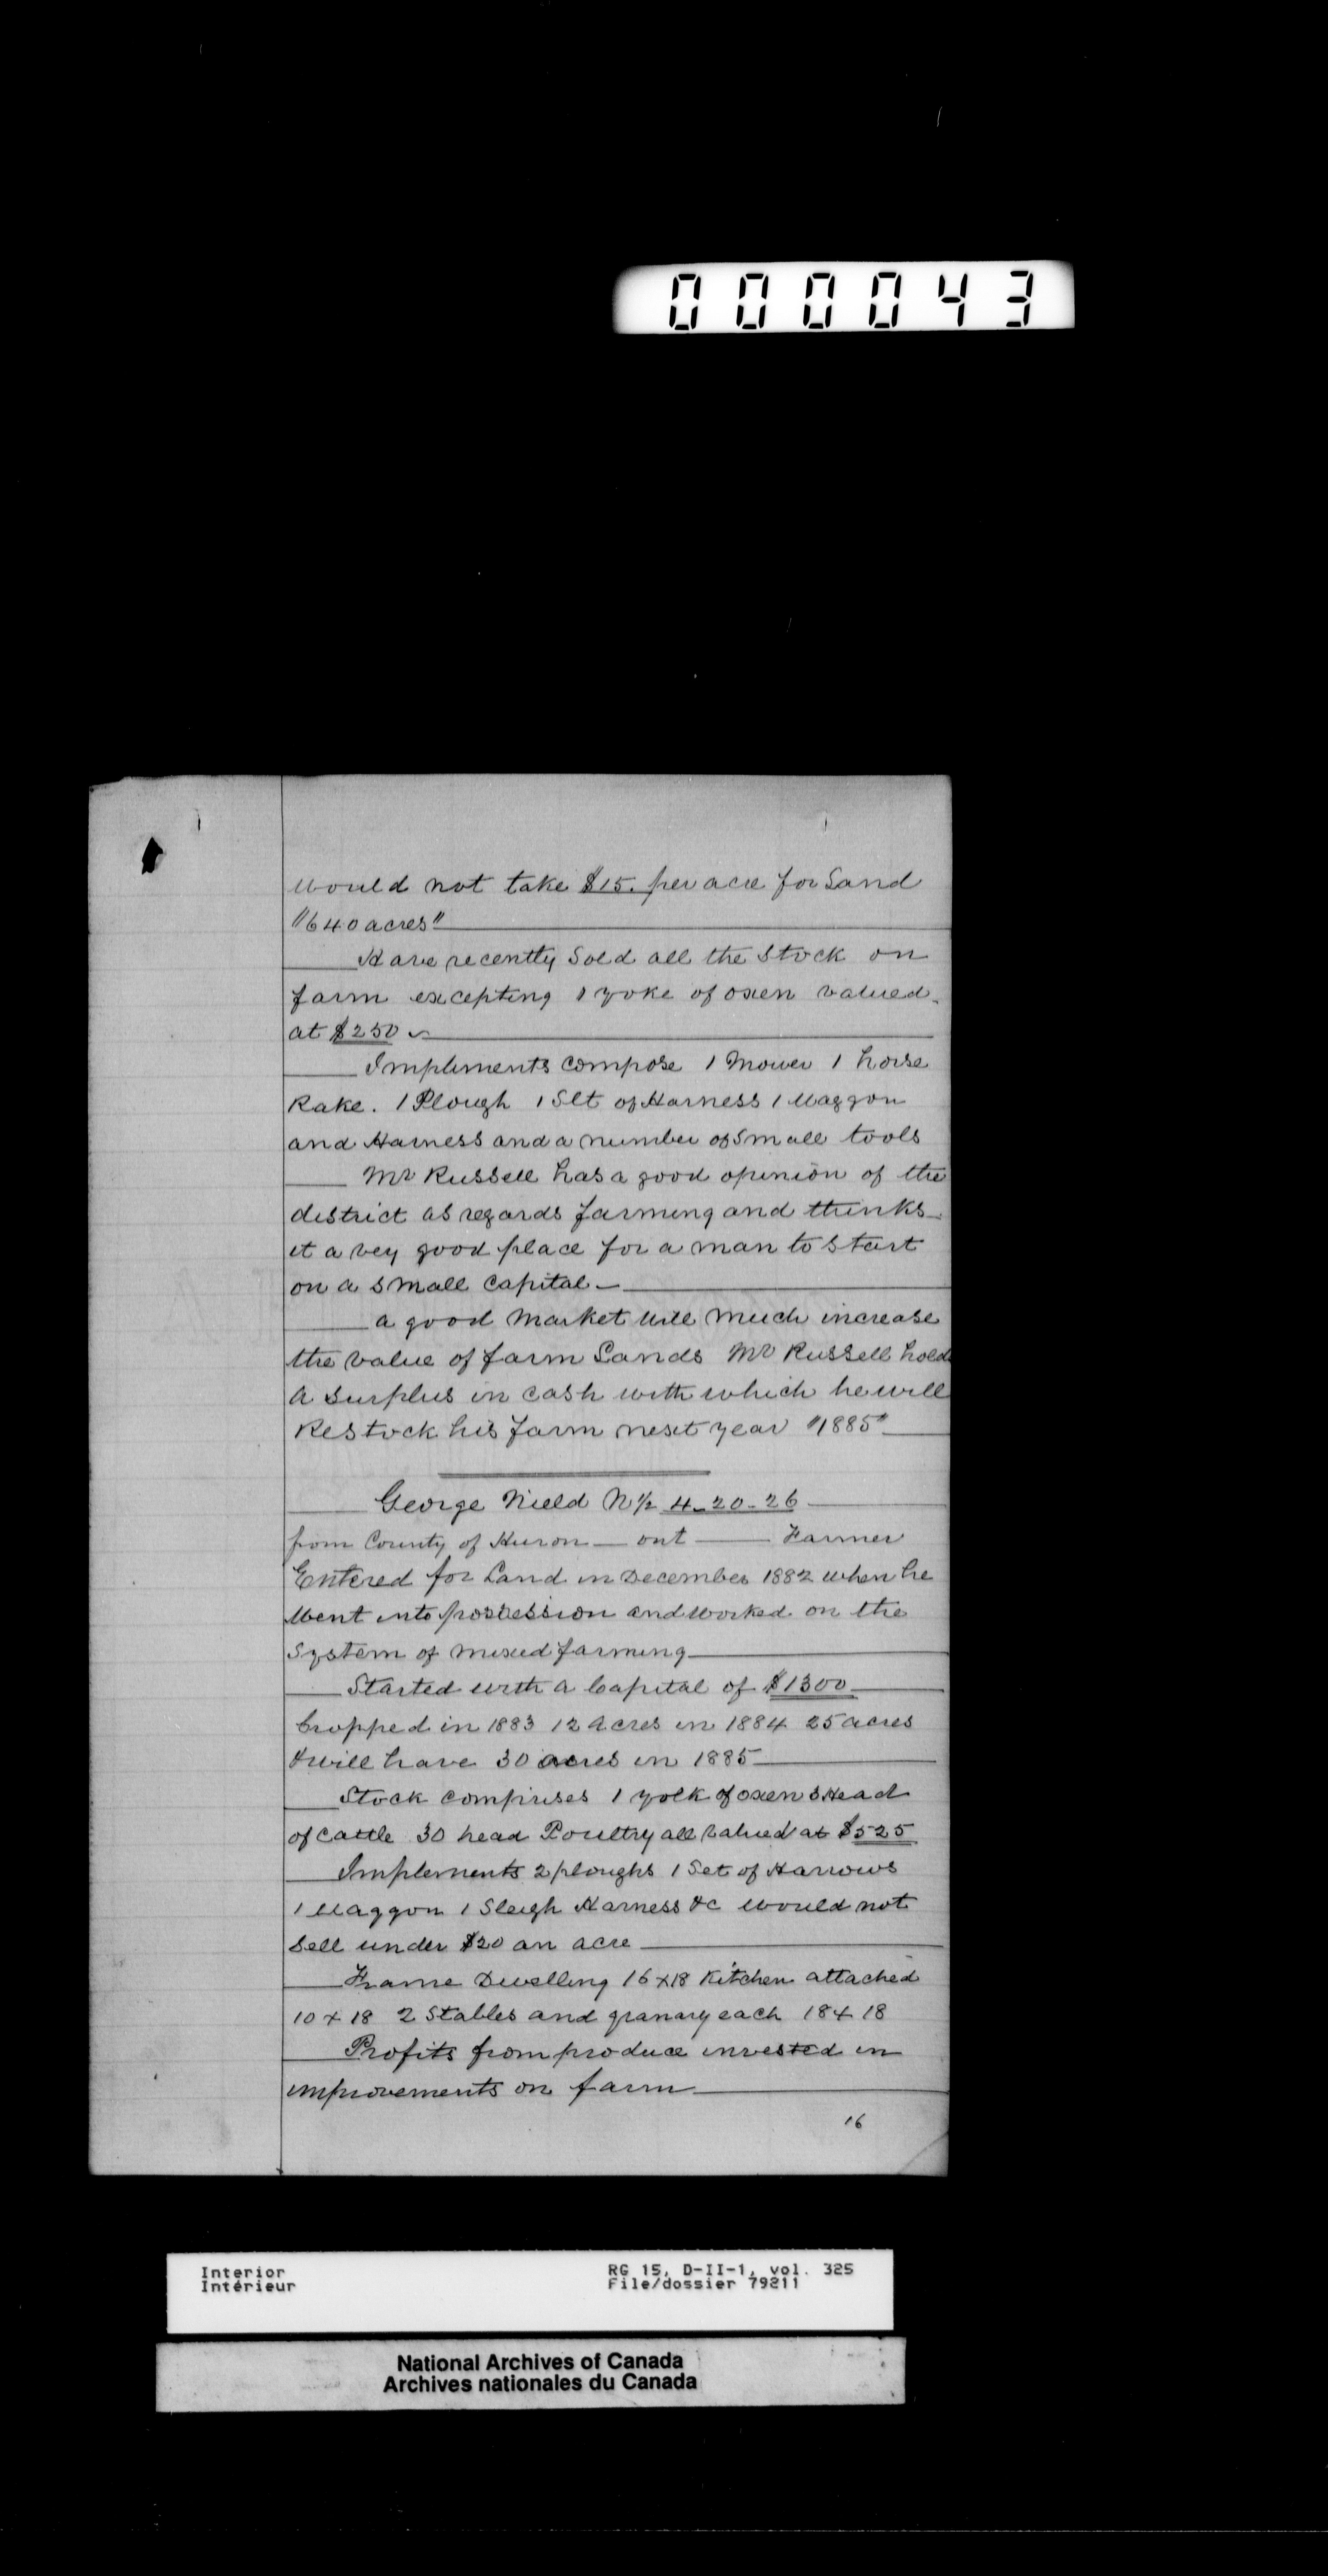 000043
would not take $15. per acre for Land
"640 acres"
Have recently Sold all the Stock on
farm excepting 1 yoke of oxen valued
at $250
Implements compose 1 Mower 1 horse
Rake. 1 Plough 1 Set of Harness 1 Waggon
and Harness and a number of small tools
Mr Russell has a good opinion of the
district as regards farming and thinks
it a vey good place for a man to Start
on a small capital
a good Market will much increase
the value of farm Lands Mr Russell holds
a surplus in cash with which he will
Restock his farm next year "1885"
George Nield N½ 4-20-26
from County of Huron - ont - Farmer
Entered for Land in December 1882 when he
Went into possession and worked on the
System of mixed farming
Started with a Capital of $1300
Cropped in 1883 12 acres in 1884 25 acres
& will have 30 acres in 1885
Stock comprises 1 yolk of oxen 3 Head
of cattle 30 head Poultry all valued at $525
Implements 2 ploughs 1 Set of Harrows
1 Waggon 1 Sleigh Harness &c would not
Sell under $20 an acre
Frame Dwelling 16 x 18 Kitchen attached
10 x 18 2 Stables and granary each 18 x 18
Profits from produce invested in
improvements on farm
16
Interior
Intérieur
RG 15, D-II-1, vol. 325
File/dossier 79211
National Archives of Canada
Archives nationales du Canada